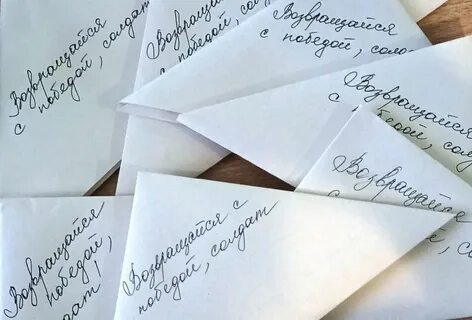 Возвращайся
с победой, солдат
Возвращайся
с победой, солдат
Возвращайся
с победой, солдат
Возвращайся
с победой, солдат
Возвращайся
с победой, солдат
Возвращайся
победой,
солдат!
Возвращайся с
победой, солдат